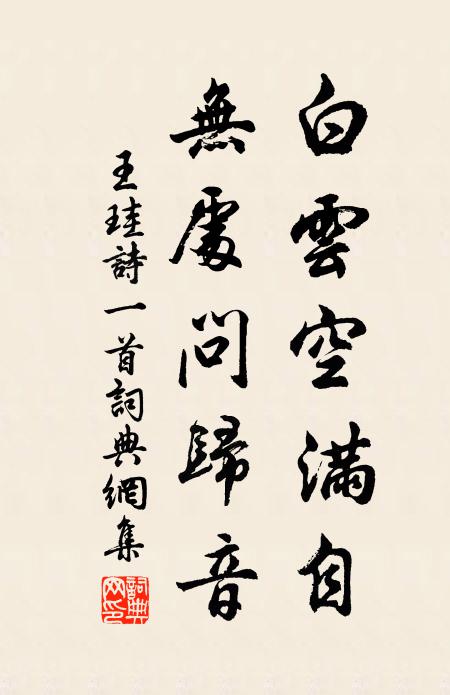 白雲空滿自
無處問歸音
王珪詩一首詞典網集
詞典网印